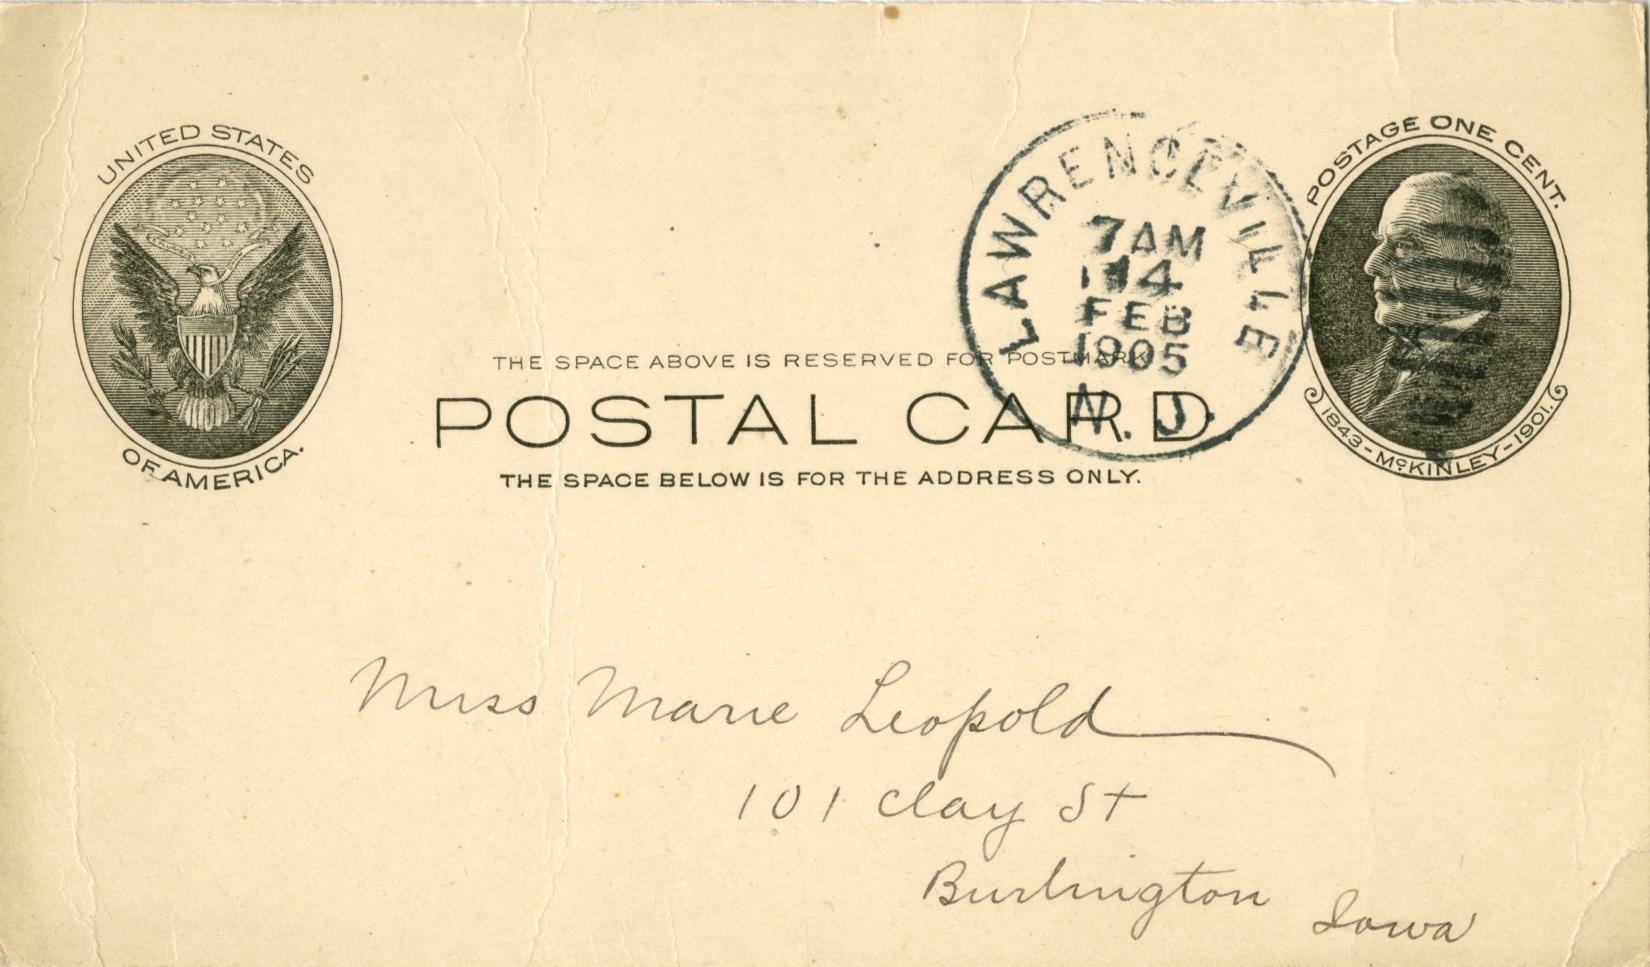 UNITED STATES
OF AMERICA.
LAWRENCEVILLE
7 AM
14
FEB
1905
N. J.
POSTAGE ONE CENT.
1843-McKINLEY-1901.
THE SPACE ABOVE IS RESERVED FOR POSTMARK
POSTAL CARD
THE SPACE BELOW IS FOR THE ADDRESS ONLY.
Miss Marie Leopold
101 Clay St
Burlington Iowa